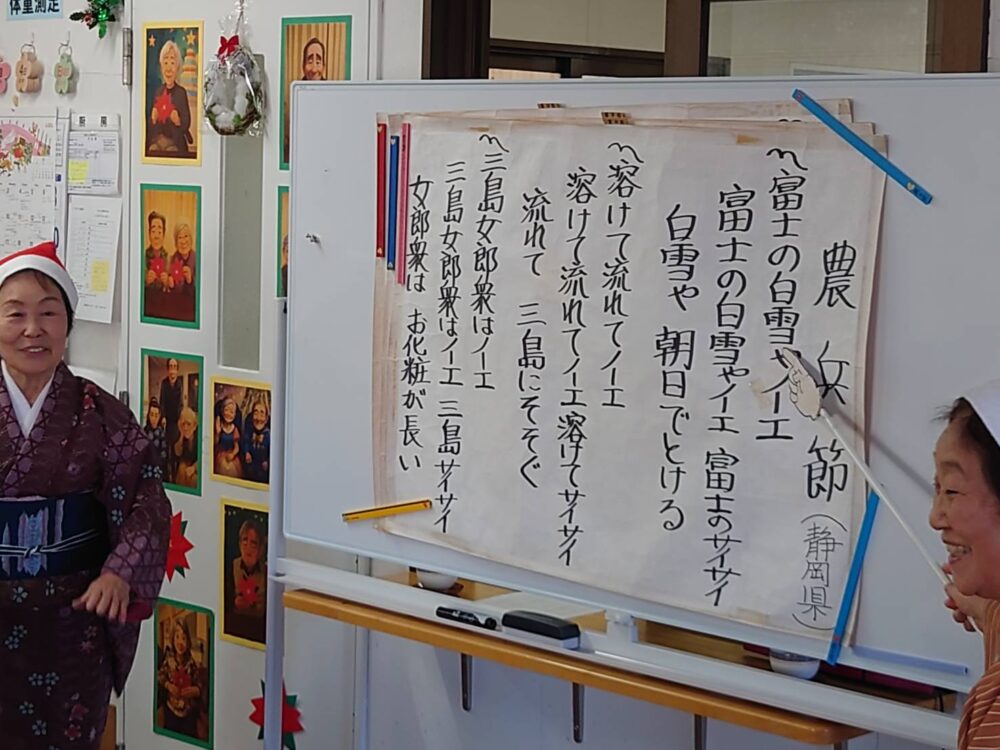 体重測定
農兵節(静岡県)
〽富士の白雪やノーエ
富士の白雪やノーエ 富士のサイサイ
白雪や 朝日でとける
〽溶けて流れてノーエ
溶けて流れてノーエ溶けてサイサイ
流れて 三島にそそぐ
〽三島女郎衆はノーエ
三島女郎衆はノーエ 三島サイサイ
女郎衆は お化粧が長い